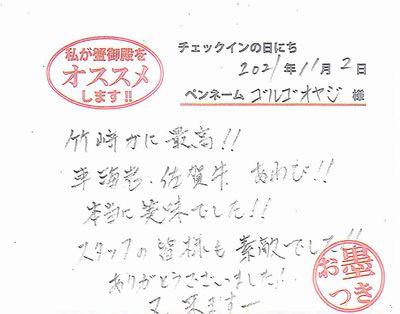 私が蟹御殿を
オススメ
します!!
チェックインの日にち
2021年11月2日
ペンネーム ゴルゴオヤジ 様
竹崎かに最高!!
車海老、佐賀牛 あわび!!
本当に美味でした!!
スタッフの皆様も素敵でした!!
ありがとうございました!
又、来ますー
お墨
つき